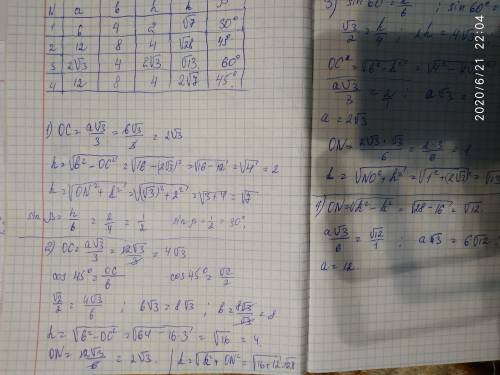 N a b h k β
1 6 4 2 √7 30°
2 12 8 4 √28 45°
3 2√3 4 2√3 √13 60°
4 12 8 4 2√7 45°
1) OC = a√3/3 = 6√3/3 = 2√3
h = √b² - OC² = √16 - (2√3)² = √16-12 = √4 = 2
k = √ON² + h² = √(√3)² + 2² = √3+4 = √7
sin β = h/b = 2/4 = 1/2 sin β = 1/2 = 30°
2) OC = a√3/3 = 12√3/3 = 4√3
cos 45° = OC/b cos 45° = √2/2
√2/2 = 4√3/b ; b√3 = 8√3 ; b = 8√3/√3 = 8
h = √b² - OC² = √64 - 16·3 = √16 = 4
ON = 12√3/6 = 2√3. k = √h² + ON² = √16+12 = √28
3) sin 60° = h/b ; sin 60° =
√3/2 = h/4 2h = 4√
OC² = √b² - h² = √4² -
a√3/3 = 2/1 ; a√3 =
a = 2√3
ON = 2√3 · √3/6 = 2·3/6 = 1
k = √NO² + h² = √1² + (2√3)² = √13
4) ON = √k² - h² = √28 - 16 = √12
a√3/6 = √12/1 ; a√3 = 6√12 ;
a = 12
2020/6/21 22:04